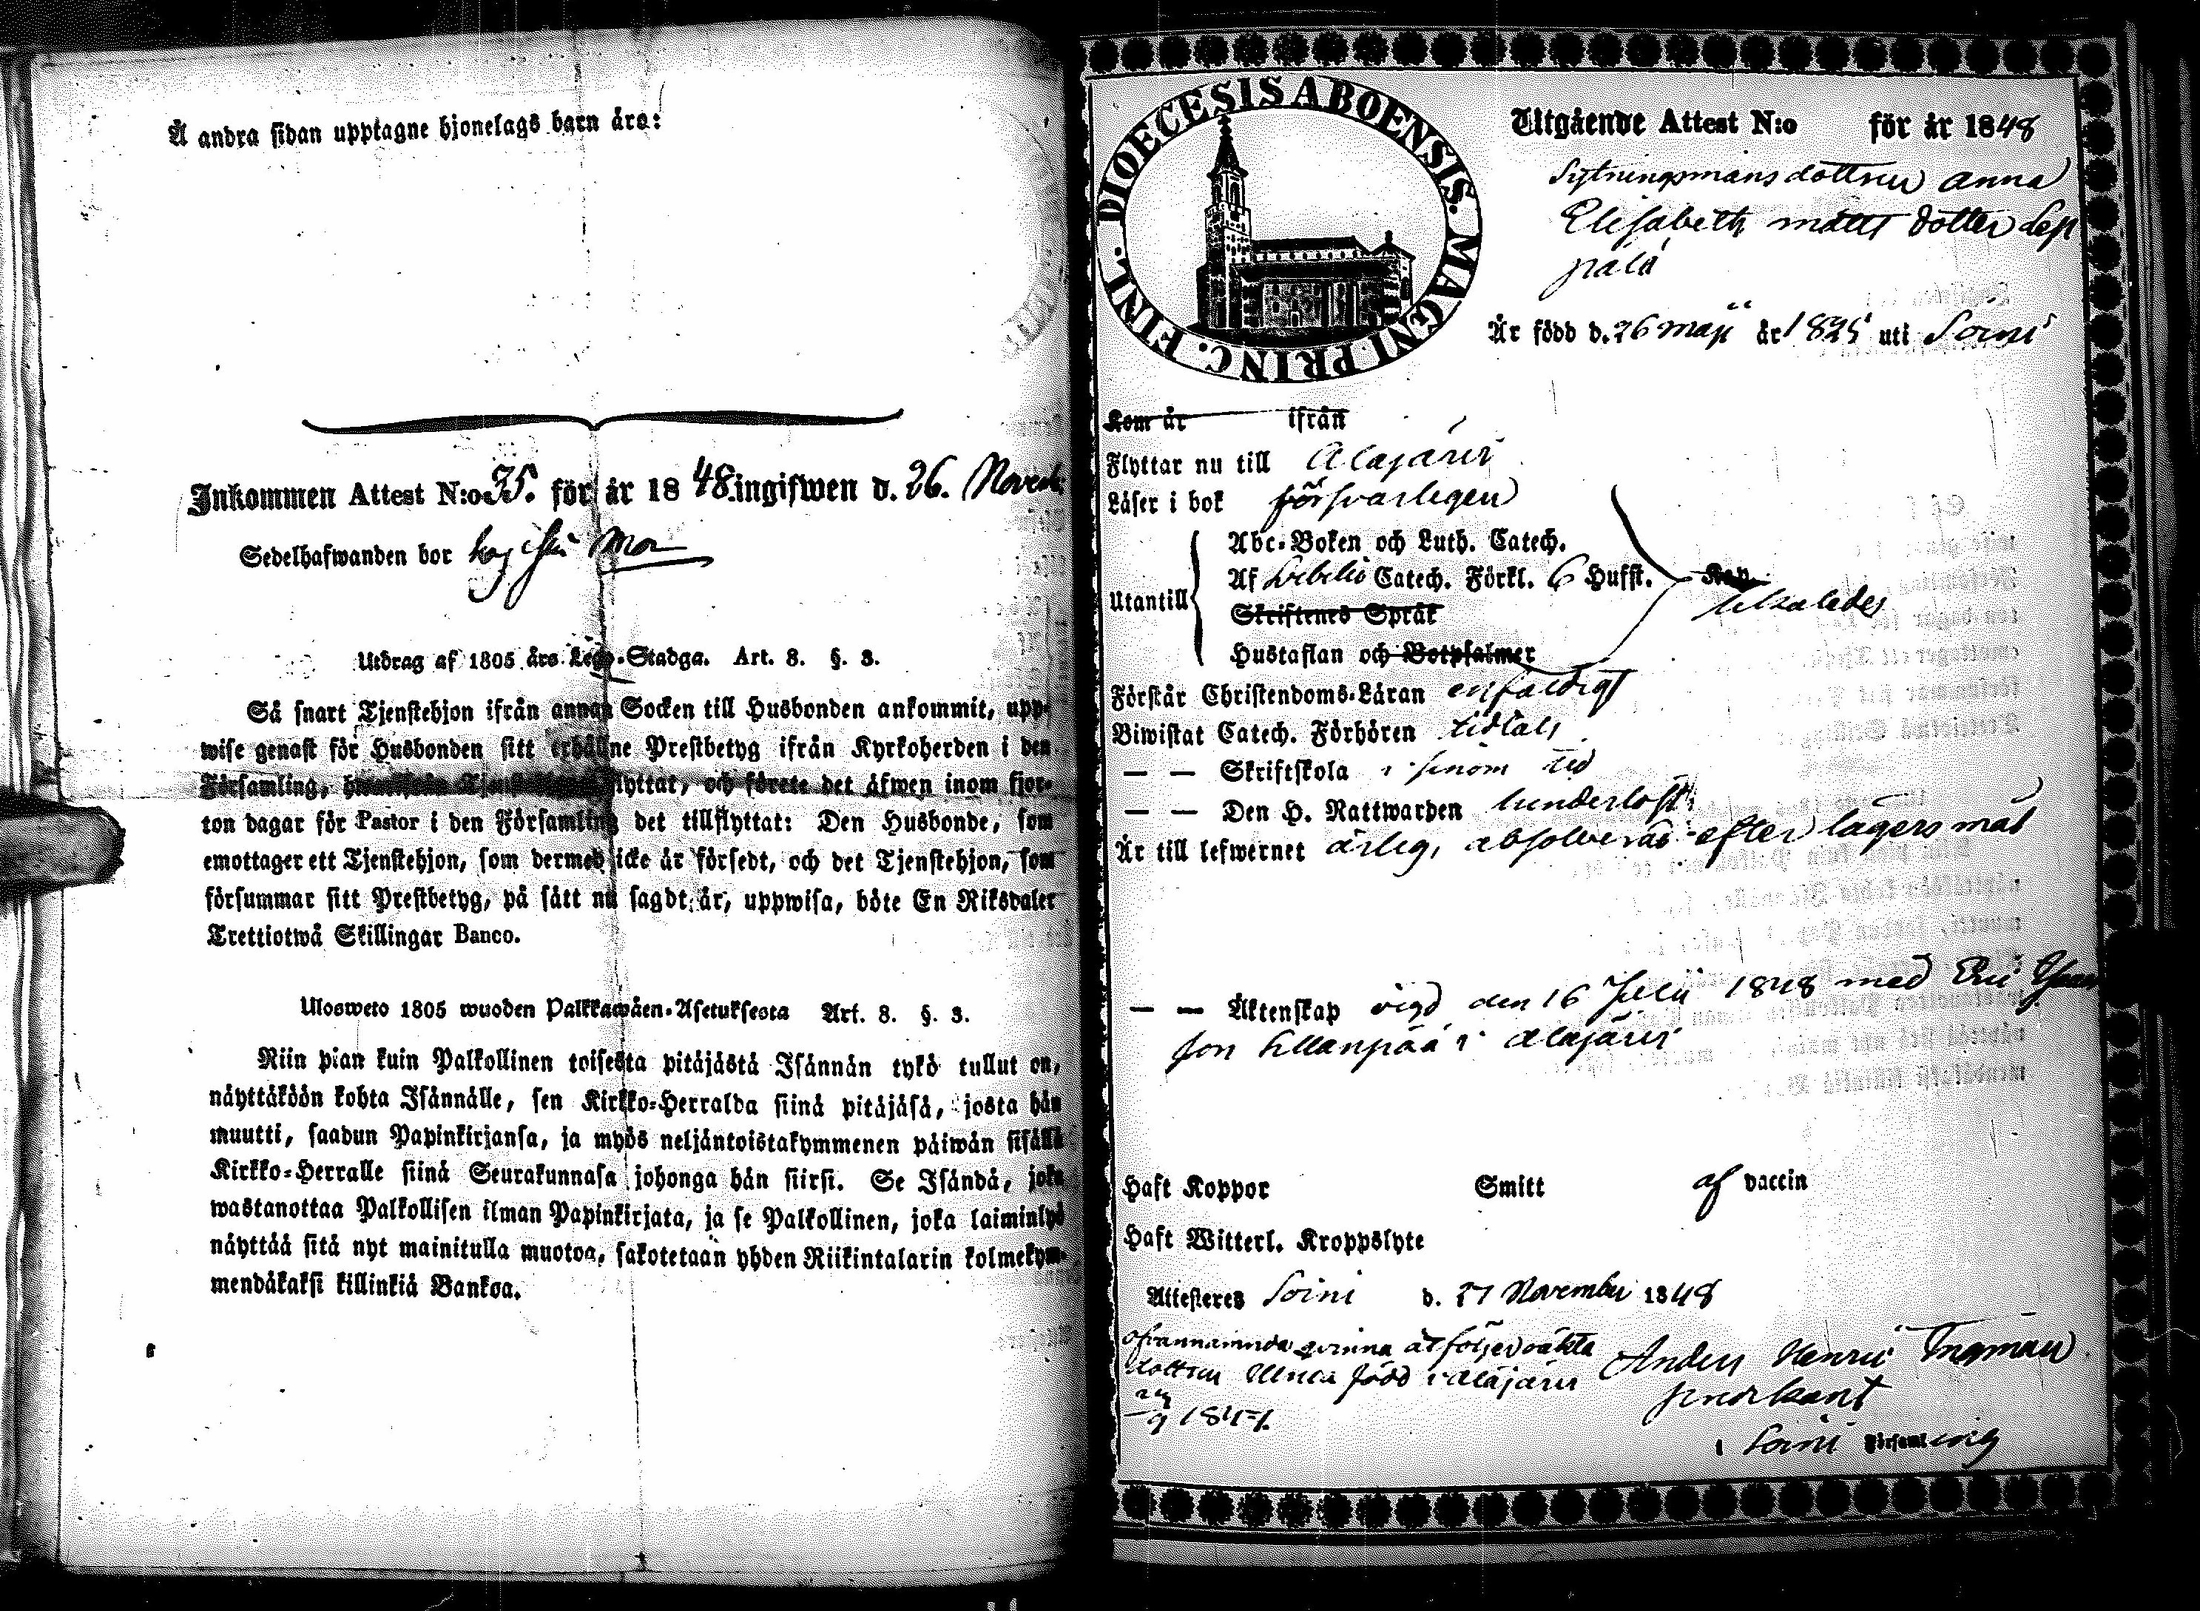 Å andra sidan upptagne hjonelags barn äro:
Inkommen Attest N:o 35. för år 1848. ingifwen d. 26. Novemb:
Sedelhafwanden bor
Utdrag af 1805 års Lego-Stadga. Art. 8. §. 3.
Så snart Tjenstehjon ifrån annan Socken till Husbonden ankommit, upp-
wise genast för Husbonden sitt erhållne Prestbetyg ifrån Kyrkoherden i den
Församling, hwarifrån Tjenstehjonet flyttat, och förete det äfwen inom fjor-
ton dagar för Pastor i den Församling det tillflyttat: Den Husbonde, som
emottager ett Tjenstehjon, som dermed icke är försedt, och det Tjenstehjon, som
försummar sitt Prestbetyg, på sätt nu sagdt är, uppwisa, böte En Riksdaler
Trettiotwå Skillingar Banco.
Ulosweto 1805 wuoden Palkkawäen-Asetuksesta Art. 8. §. 3.
Niin pian kuin Palkollinen toisesta pitäjästä Isännän tykö tullut on,
näyttäköön kohta Isännälle, sen Kirkko-Herralda siinä pitäjäsä, josta hän
muutti, saadun Papinkirjansa, ja myös neljäntoistakymmenen päiwän sisällä
Kirkko-Herralle siinä Seurakunnasa johonga hän siirsi. Se Isändä, joka
wastanottaa Palkollisen ilman Papinkirjata, ja se Palkollinen, joka laiminlyö
näyttää sitä nyt mainitulla muotoa, sakotetaan yhden Riikintalarin kolmekym-
mendäkaksi killinkiä Bankoa.
DIOECESIS ABOENSIS. MAGNI PRINC. FINL.
Utgående Attest N:o för år 1848
Sytningsmans dottren Anna
Elisabeth Matts dotter Sep
pälä
Är född d. 26 Maji år 1825 uti Soini
Kom år ifrån
Flyttar nu till Alajärvi
Läser i bok försvarligen
Utantill
Abc-Boken och Luth. Catech.
Af Svebelii Catech. Förkl. 6 Hufst.
Skriftenes Språk
Hustaflan och Botpsalmer
Kan
likaledes
Förstår Christendoms-Läran enfaldigt
Biwistat Catech. Förhören tidtals
— — Skriftskola i sinom tid
— — Den H. Nattwarden
Är till lefwernet ärlig, absolverad efter lägersmål
— — Äktenskap vigd den 16 Julii 1848 med Eric
son Ellanpää i Alajärvi
Haft Koppor Smitt af vaccin
Haft Witterl. Kroppslyte
Attesteres Soini d. 27 November 1848
ofvannämnda qvinna åtföljer oäkta
dottren Ulrica född i Alajärvi
Anders Henric Ingman
i Soini Församling